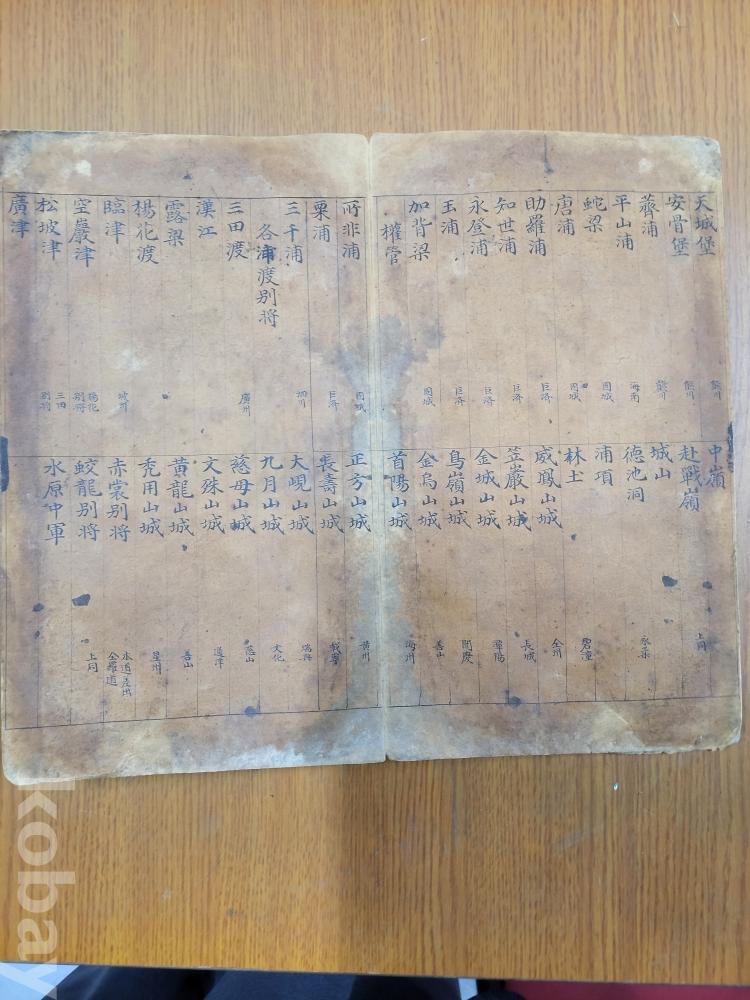 天城堡 熊川
安骨堡 熊川
薺浦 熊川
平山浦 海南
蛇梁 固城
唐浦 固城
助羅浦 巨済
知世浦 巨済
永登浦 巨済
玉浦 巨済
加背梁 固城
權管
所非浦 固城
栗浦 巨済
三千浦 泗川
各津渡别将
三田渡 廣州
漢江
露梁
楊花渡
臨津 坡州
空巖津 楊花别将
松坡津 三田别将
廣津
中嶺 上同
赴戰嶺
城山 永柔
德池洞
浦項 碧潼
林土 全州
威鳳山城 長城
笠巖山城 潭陽
金城山城 聞慶
鳥嶺山城 善山
金烏山城 海州
首陽山城
正方山城 黄州
長壽山城 載寧
大峴山城 瑞興
九月山城 文化
慈母山城 慈山
文殊山城 通津
黄龍山城 善山
禿用山城 星州
赤裳别将 本道金羅道
鮫龍别将 上同
水原中軍
kobay